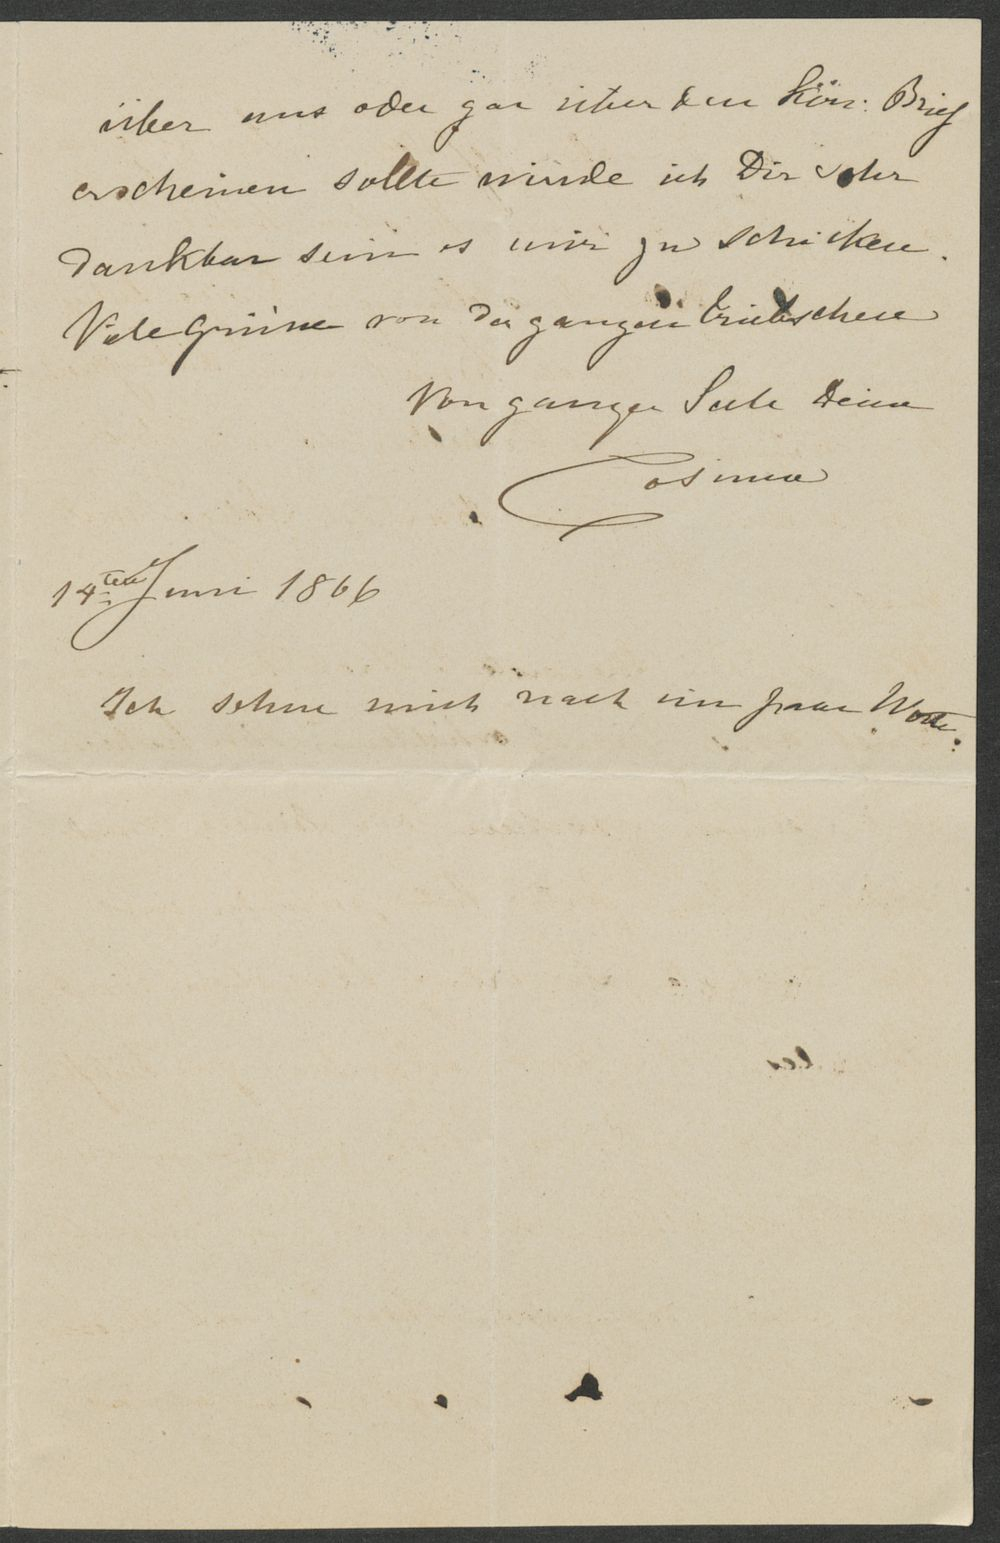 über uns oder gar über den Kön: Brief
erscheinen sollte würde ich Dir sehr
dankbar sein es mir zu schicken.
Viele Grüsse von der ganzen Triebschen
Von ganzer Seele Deine
Cosima
14ten Juni 1866
Ich sehne mich nach ein paar Worte.